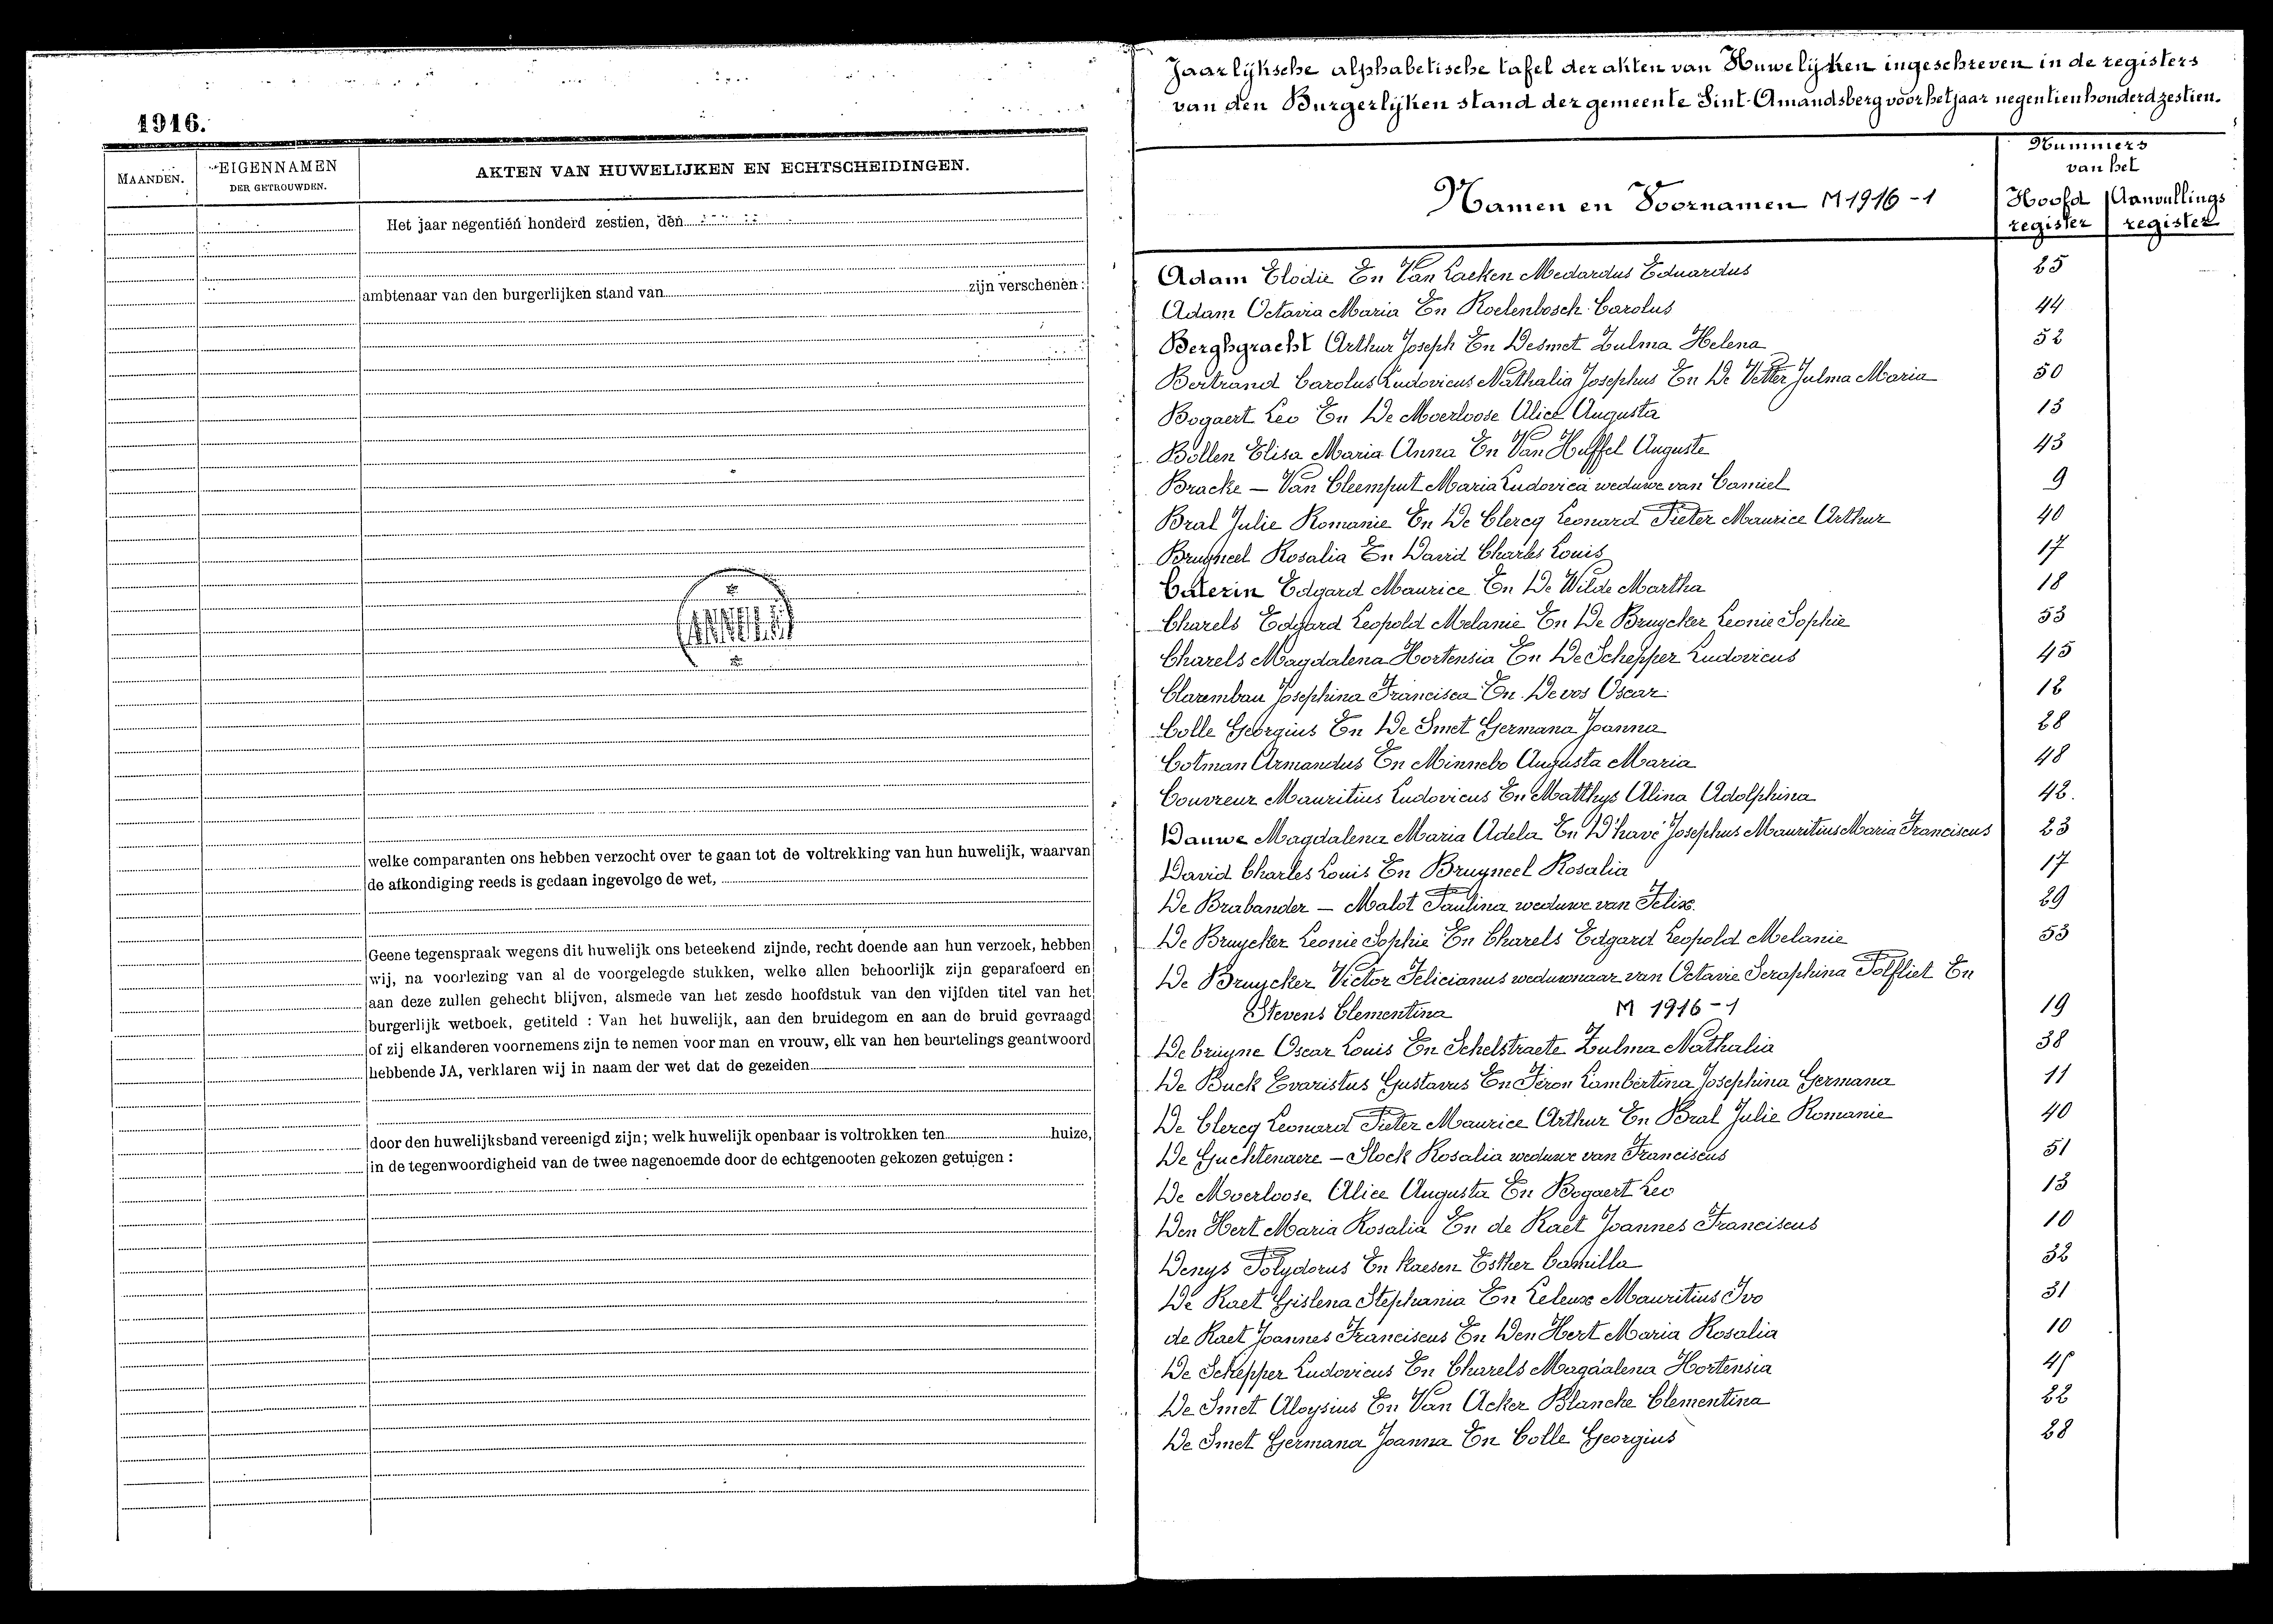 1916.
MAANDEN.
EIGENNAMEN
DER GETROUWDEN.
AKTEN VAN HUWELIJKEN EN ECHTSCHEIDINGEN.
Het jaar negentien honderd zestien, den
ambtenaar van den burgerlijken stand van zijn verschenen:
welke comparanten ons hebben verzocht over te gaan tot de voltrekking van hun huwelijk, waarvan
de afkondiging reeds is gedaan ingevolge de wet,
Geene tegenspraak wegens dit huwelijk ons beteekend zijnde, recht doende aan hun verzoek, hebben
wij, na voorlezing van al de voorgelegde stukken, welke allen behoorlijk zijn geparafeerd en
aan deze zullen gehecht blijven, alsmede van het zesde hoofdstuk van den vijfden titel van het
burgerlijk wetboek, getiteld : Van het huwelijk, aan den bruidegom en aan de bruid gevraagd
of zij elkanderen voornemens zijn te nemen voor man en vrouw, elk van hen beurtelings geantwoord
hebbende JA, verklaren wij in naam der wet dat de gezeiden
door den huwelijksband vereenigd zijn; welk huwelijk openbaar is voltrokken ten huize,
in de tegenwoordigheid van de twee nagenoemde door de echtgenooten gekozen getuigen :
Jaarlijksche alphabetische tafel der akten van Huwelijken ingeschreven in de registers
van den Burgerlijken stand der gemeente Sint-Amandsberg voor het jaar negentienhonderd zestien.
Namen en Voornamen M 1916 - 1
Nummers
van het
Hoofd
register
Aanvullings
register
Adam Elodie En Van Laeken Medardus Eduardus 25
Adam Octavia Maria En Roelenbosch Carolus 44
Berghgracht Arthur Joseph En Desmet Zulma Helena 52
Bertrand Carolus Ludovicus Nathalia Josephus En De Vetter Julma Maria 50
Bogaert Leo En De Moerloose Alice Augusta 13
Bollen Elisa Maria Anna En Van Huffel Auguste 43
Bracke — Van Cleemput Maria Ludovica weduwe van Camiel 9
Bral Julie Romanie En De Clercq Leonard Pieter Maurice Arthur 40
Bruyneel Rosalia En David Charles Louis 17
Caterin Edgard Maurice En De Wilde Martha 18
Charels Edgard Leopold Melanie En De Bruycker Leonie Sophie 53
Charels Magdalena Hortensia En De Schepper Ludovicus 45
Clarembau Josephina Francisca En Devos Oscar 12
Colle Georgius En De Smet Germana Joanna 28
Cotman Armandus En Minnebo Augusta Maria 48
Couvreur Mauritius Ludovicus En Matthys Alina Adolphina 42.
Dauwe Magdalena Maria Adela En D'havé Josephus Mauritius Maria Franciscus 23
David Charles Louis En Bruyneel Rosalia 17
De Brabander — Malot Paulina weduwe van Felix. 29
De Bruycker Leonie Sophie En Charels Edgard Leopold Melanie 53
De Bruycker Victor Felicianus weduwnaar van Octavie Seraphina Polfliet En
Stevens Clementina M 1916 - 1 19
Debruyne Oscar Louis En Schelstraete Zulma Nathalia 38
De Buck Evaristus Gustavus En Feron Lambertina Josephina Germana 11
De Clercq Leonard Pieter Maurice Arthur En Bral Julie Romanie 40
De Guchtenaere — Slock Rosalia weduwe van Franciscus 51
De Moerloose Alice Augusta En Bogaert Leo 13
Den Hert Maria Rosalia En de Raet Joannes Franciscus 10
Denys Polydorus En Raesen Esther Camilla 32
De Raet Gislena Stephania En Leleux Mauritius Ivo 31
de Raet Joannes Franciscus En Den Hert Maria Rosalia 10
De Schepper Ludovicus En Charels Magdalena Hortensia 45
De Smet Aloysius En Van Acker Blanche Clementina 22
De Smet Germana Joanna En Colle Georgius 28